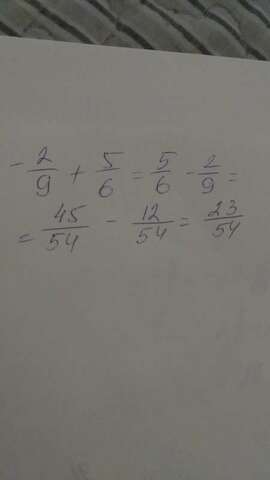 - 2/9 + 5/6 = 5/6 - 2/9 =
= 45/54 - 12/54 = 23/54